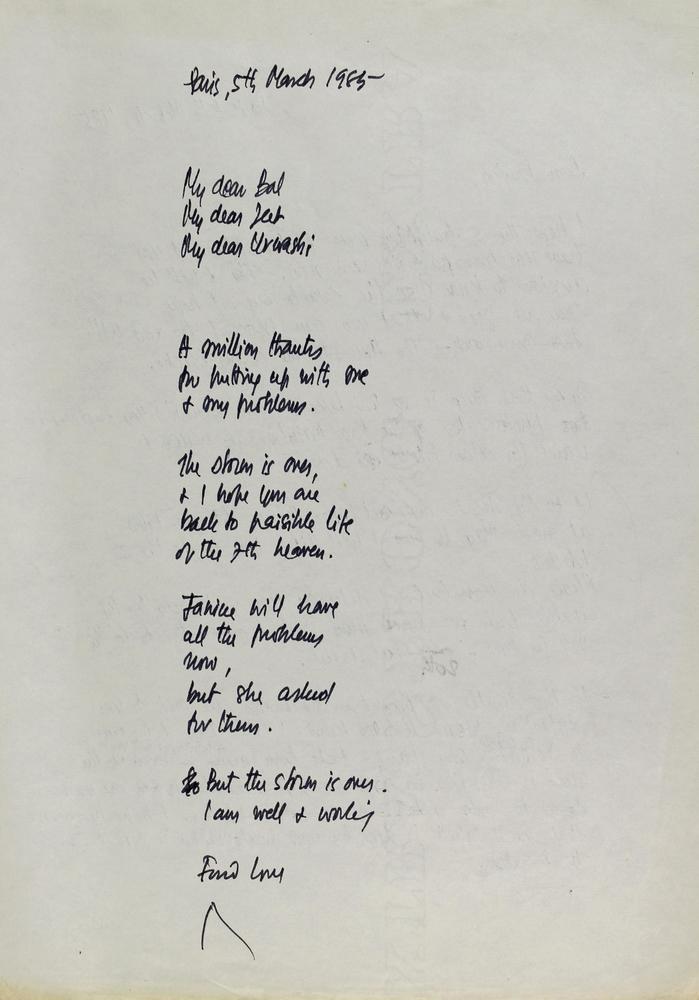 Paris, 5th March 1985
My dear Bal
My dear Jeet
My dear Urvashi
A million thanks
for putting up with me
& my problems.
The storm is over,
& I hope you are
back to paisible life
of the 7th heaven.
Janine will have
all the problems
now,
but she asked
for them.
But the storm is over.
I am well & working
Fond love